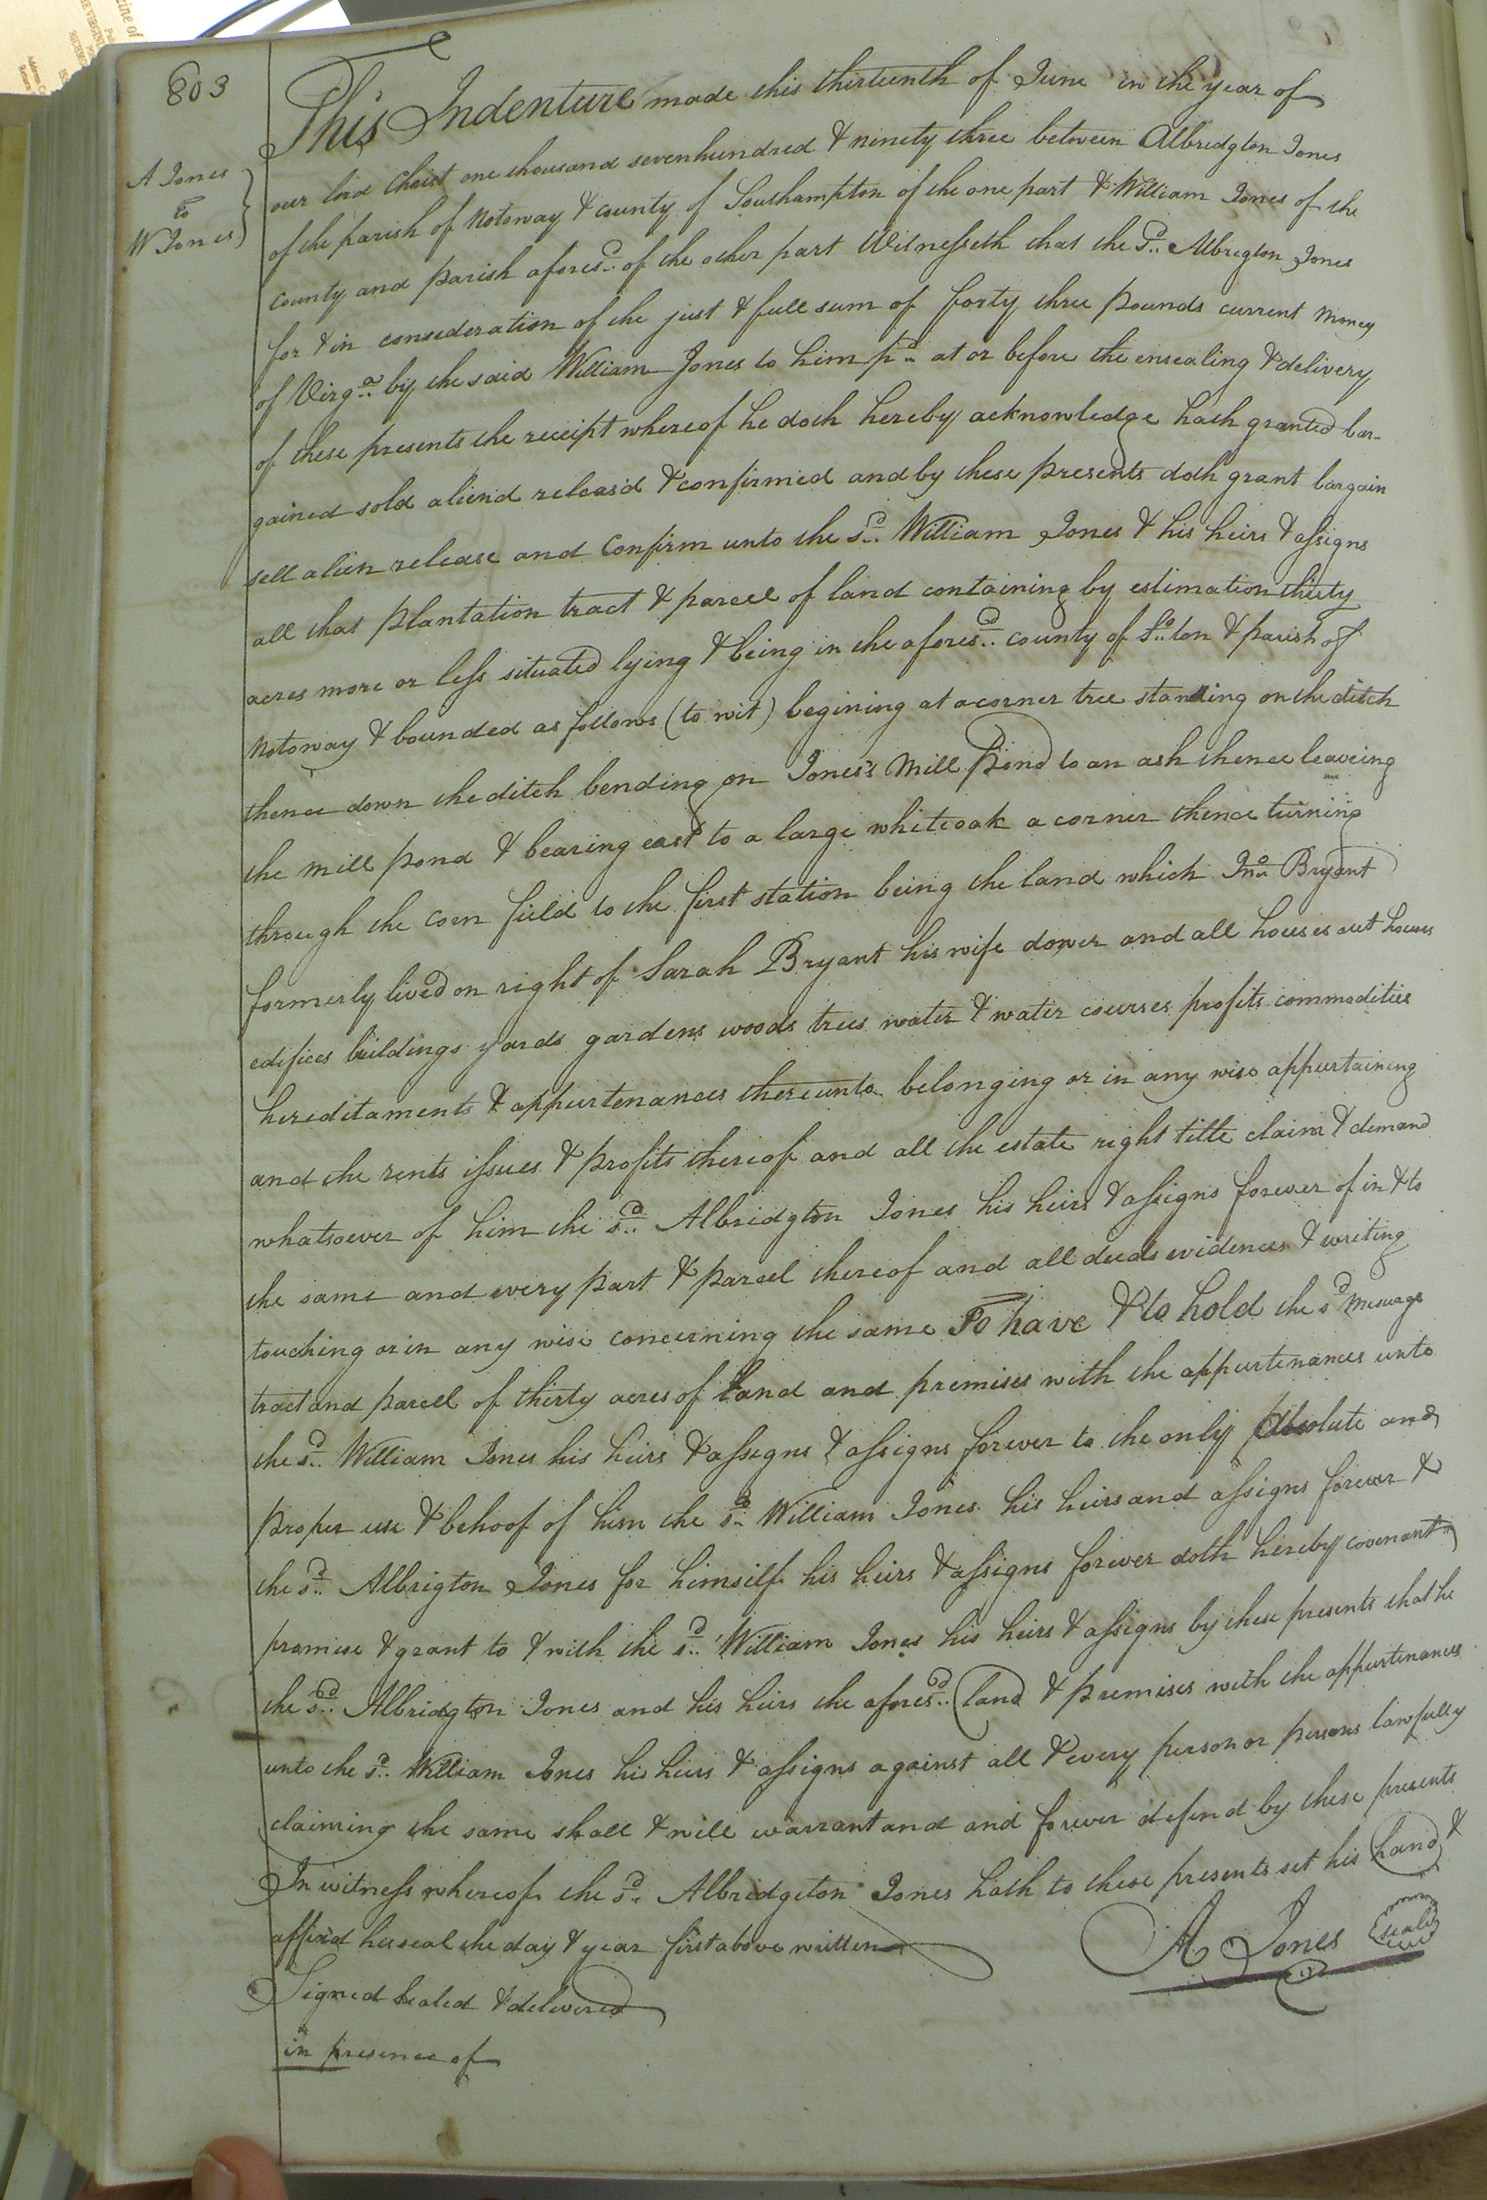 803
A Jones
to
W Jones
This Indenture made this thirteenth of June in the year of
our lord Christ one thousand seven hundred & ninety three between Albridgton Jones
of the parish of Notoway & county of Southampton of the one part & William Jones of the
county and parish aforesd. of the other part Witnesseth that the sd. Albregton Jones
for & in consideration of the just & full sum of forty three pounds current money
of Virga. by the said William Jones to him pd. at or before the ensealing & delivery
of these presents the receipt whereof he doth hereby acknowledge hath granted bar-
gained sold aliend releasd & confirmed and by these presents doth grant bargain
sell alien release and Confirm unto the sd. William Jones & his heirs & assigns
all that plantation tract & parcel of land containing by estimation thirty
acres more or less situated lying & being in the aforesd. county of So.ton & parish of
Notoway & bounded as follows (to wit) begining at a corner tree standing on the ditch
thence down the ditch bending on Jones's Mill Pond to an ash thence leaveing
the mill pond & bearing east to a large white oak a corner thence turning
through the corn field to the first station being the land which Jno. Bryant
formerly lived on right of Sarah Bryant his wife dower and all houses out houses
edifices buildings yards gardens woods trees water & water courses profits commodities
hereditaments & appurtenances thereunto belonging or in any wise appurtaining
and the rents issues & profits thereof and all the estate right title claim & demand
whatsoever of him the sd. Albridgton Jones his heirs & assigns forever of in & to
the same and every part & parcel thereof and all deeds evidences & writing
touching or in any wise concerning the same To have & to hold the sd. mesuage
tract and parcell of thirty acres of land and premises with the appurtenances unto
the sd. William Jones his heirs & assigns & assigns forever to the only absolute and
proper use & behoof of him the sd. William Jones his heirs and assigns forever &
the sd. Albrigton Jones for himself his heirs & assigns forever doth hereby covenant
promise & grant to & with the sd. William Jones his heirs & assigns by these presents that he
the sd. Albridgton Jones and his heirs the aforesd. land & premises with the appurtenances
unto the sd. William Jones his heirs & assigns against all & every person or persons lawfully
claiming the same shall & will warrant and and forever defend by these presents
In witness whereof the sd. Albridgeton Jones hath to these presents set his hand &
affixd his seal the day & year first above written
A Jones seal
Signed Sealed & delivered
in presence of